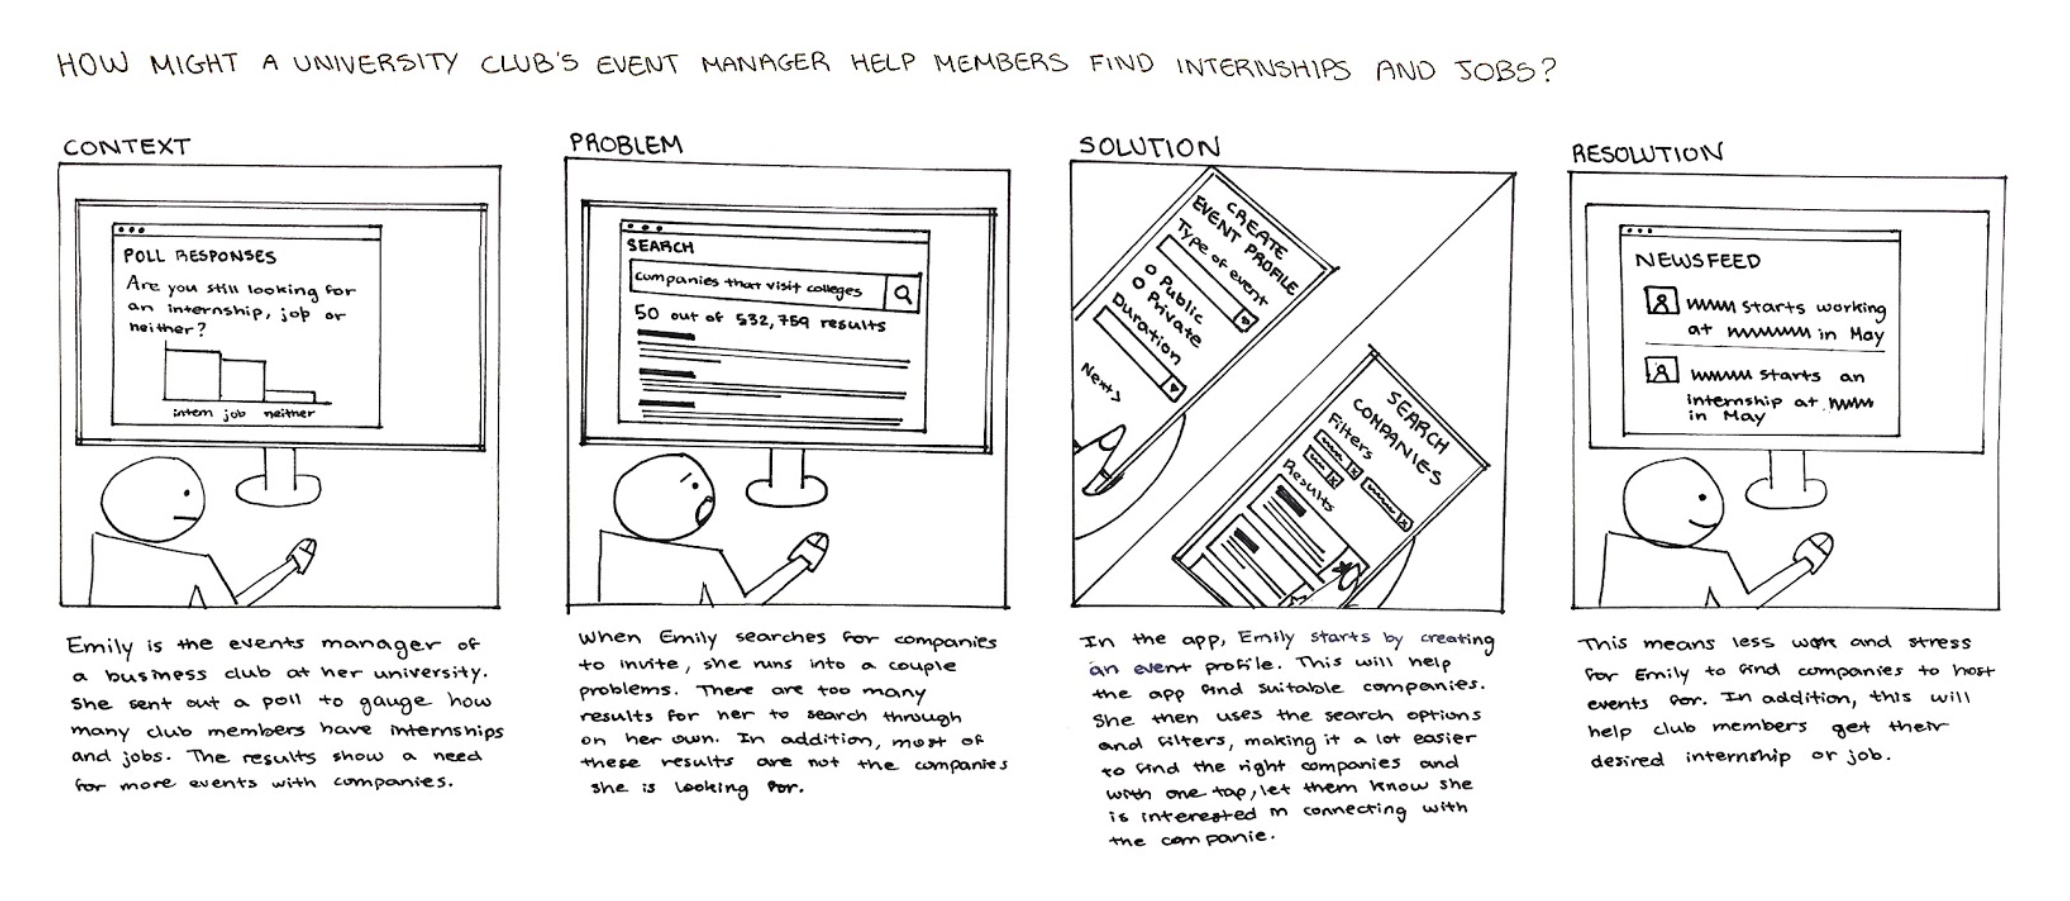 HOW MIGHT A UNIVERSITY CLUB'S EVENT MANAGER HELP MEMBERS FIND INTERNSHIPS AND JOBS?
CONTEXT
POLL RESPONSES
Are you still looking for
an internship, job or
neither?
intern job neither
Emily is the events manager of
a business club at her university.
She sent out a poll to gauge how
many club members have internships
and jobs. The results show a need
for more events with companies.
PROBLEM
SEARCH
companies that visit colleges
50 out of 532,759 results
When Emily searches for companies
to invite, she runs into a couple
problems. There are too many
results for her to search through
on her own. In addition, most of
these results are not the companies
she is looking for.
SOLUTION
CREATE
EVENT PROFILE
Type of event
Public
Private
Duration
Next >
SEARCH
COMPANIES
Filters
Results
In the app, Emily starts by creating
an event profile. This will help
the app find suitable companies.
She then uses the search options
and filters, making it a lot easier
to find the right companies and
with one tap, let them know she
is interested in connecting with
the companie.
RESOLUTION
NEWSFEED
starts working
at in May
starts an
internship at
in May
This means less work and stress
for Emily to find companies to host
events for. In addition, this will
help club members get their
desired internship or job.